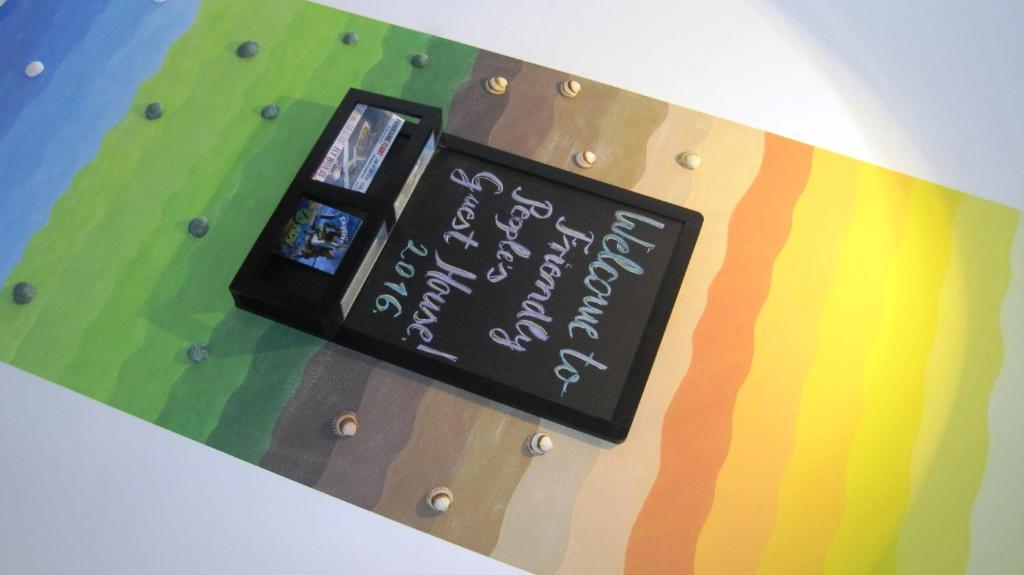 Welcome to
Friendly
People's
Guest House!
2016.